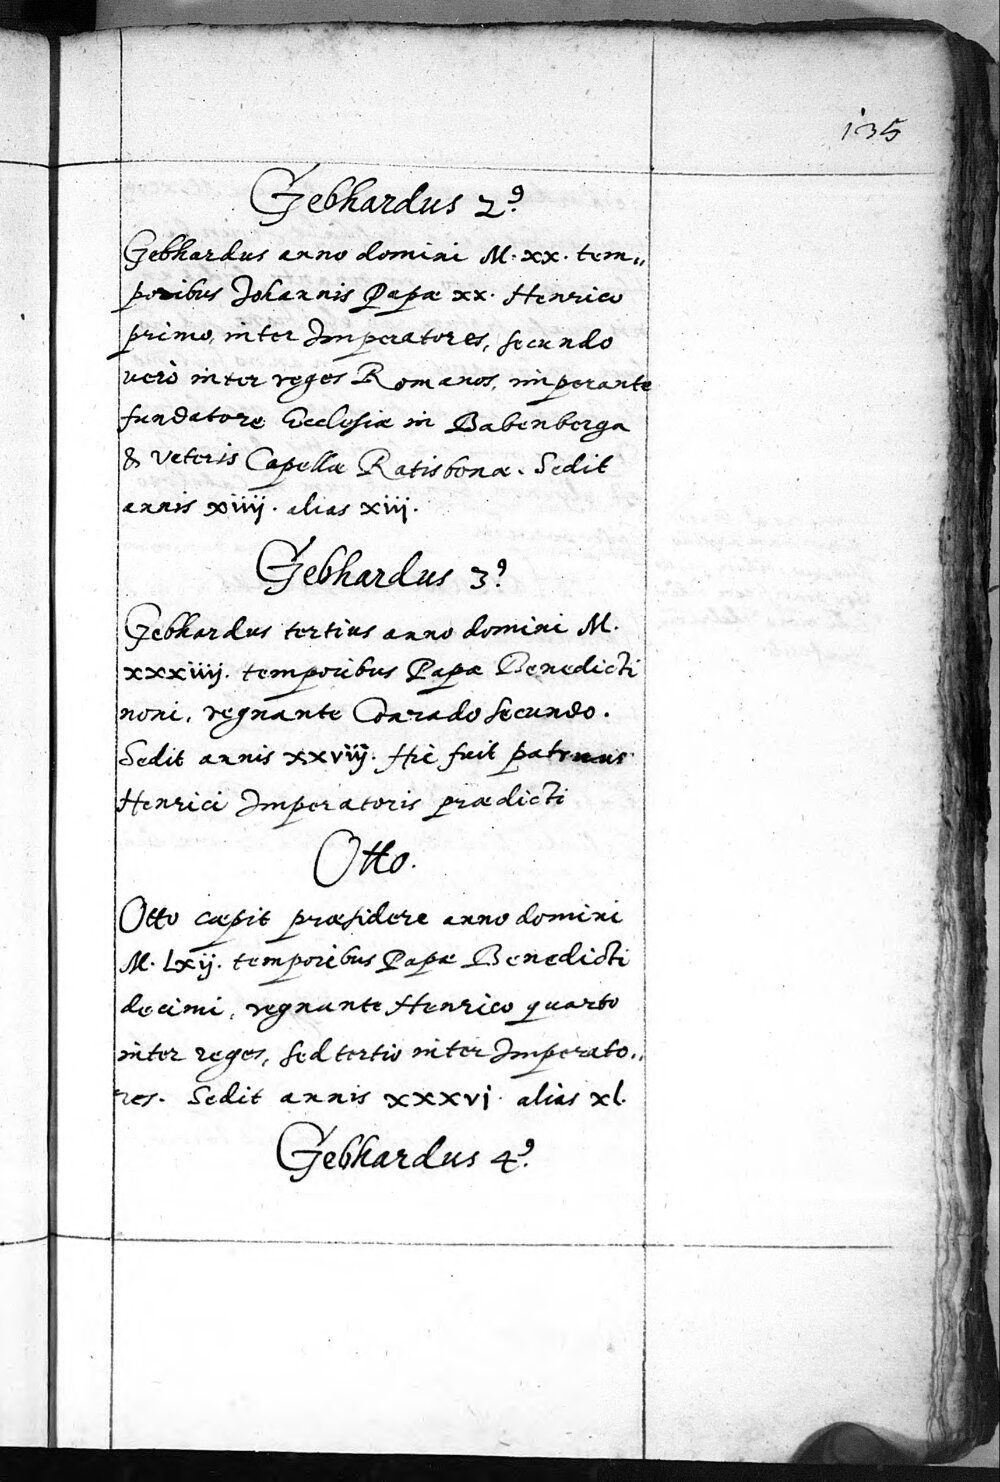 135
Gebhardus 2⁹.
Gebhardus anno domini M. xx. tem„
poribus Johannis Papæ xx. Henrico
primo, inter Imperatores, secundo
verò inter reges Romanos, imperante
fundatore Ecclesiæ in Babenberga
& veteris Capellæ Ratisbonæ. Sedit
annis xiiij. alias xiij.
Gebhardus 3⁹.
Gebhardus tertius anno domini M.
xxxiiij. temporibus Papæ Benedicti
noni, regnante Conrado secundo.
Sedit annis xxviij. Hic fuit patruus
Henrici Imperatoris prædicti
Otto.
Otto cæpit præsidere anno domini
M. Lxij. temporibus Papæ Benedicti
decimi, regnante Henrico quarto
inter reges, sed tertio inter Imperato„
res. Sedit annis xxxvj alias xl.
Gebhardus 4⁹.